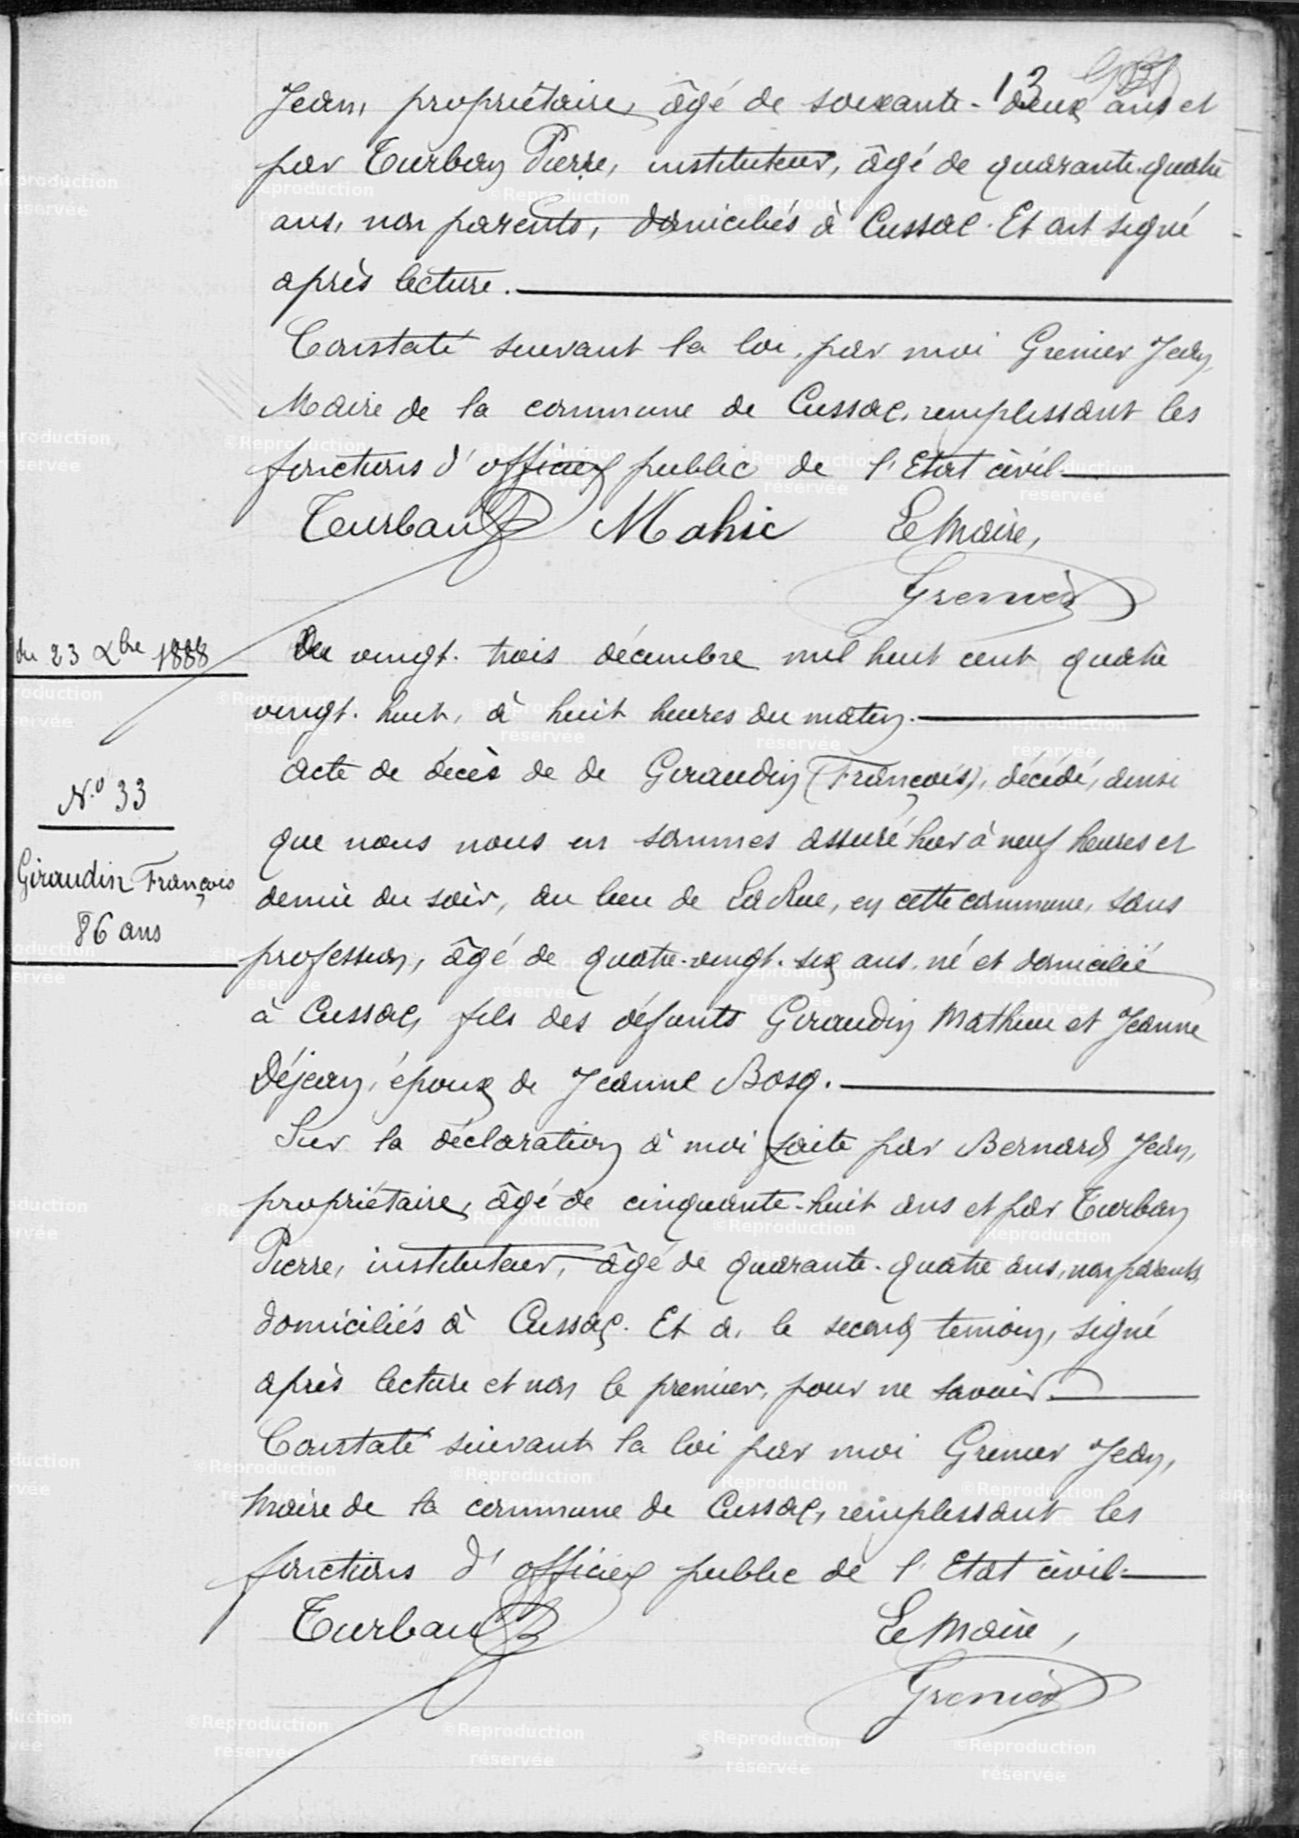 13
Jean, propriétaire, âgé de soixante-deux ans et
par Turban Pierre, instituteur, âgé de quarante-quatre
ans, non parents, domiciliés à Cussac. Et ont signé
après lecture.
Constaté suivant la loi, par moi Grenier Jean,
Maire de la commune de Cussac, remplissant les
fonctions d'officier public de l'Etat civil.
Turban Mahie Le Maire,
Grenier
du 23 Xbre 1888
Du vingt-trois décembre mil huit cent quatre
vingt-huit, à huit heures du matin.
N.o 33
Giraudin François
86 ans
Acte de décès de de Giraudin (François), décédé, ainsi
que nous nous en sommes assuré hier à neuf heures et
demie du soir, au lieu de La Rue, en cette commune, sans
profession, âgé de quatre-vingt-six ans, né et domicilié
à Cussac, fils des défunts Giraudin Mathieu et Jeanne
Déjean, époux de Jeanne Bosq.
Sur la déclaration à moi faite par Bernard Jean,
propriétaire, âgé de cinquante-huit ans et par Turban
Pierre, instituteur, âgé de quarante-quatre ans, non parents,
domiciliés à Cussac. Et a, le second temoin, signé
après lecture et non le premier, pour ne savoir.
Constaté suivant la loi par moi Grenier Jean,
Maire de la commune de Cussac, remplissant les
fonctions d'officier public de l'Etat civil.
Turban Le Maire,
Grenier
©Reproduction
réservée